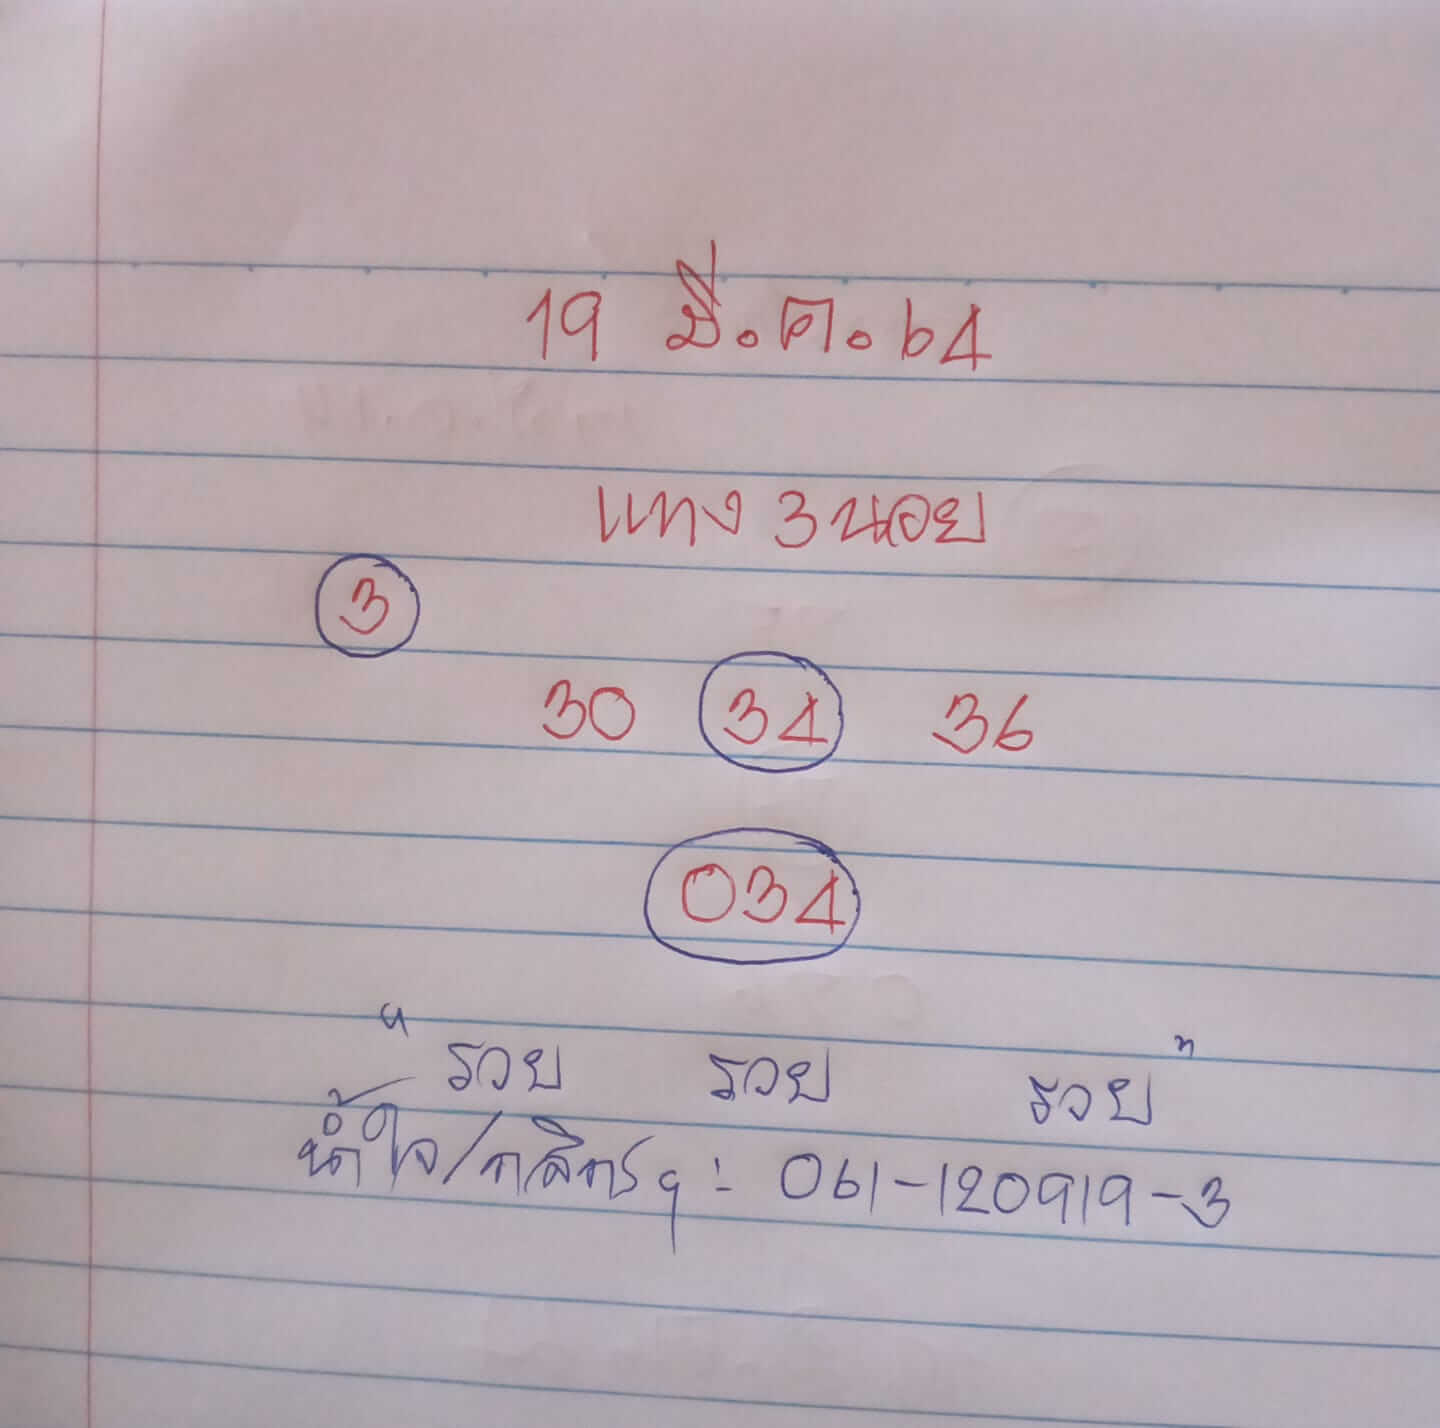 19 มี.ค.64
แทง 3 นอย
3
30 34 36
034
"รวย รวย รวย"
น้ำใจ/กสิกรฯ:- 061-120919-3